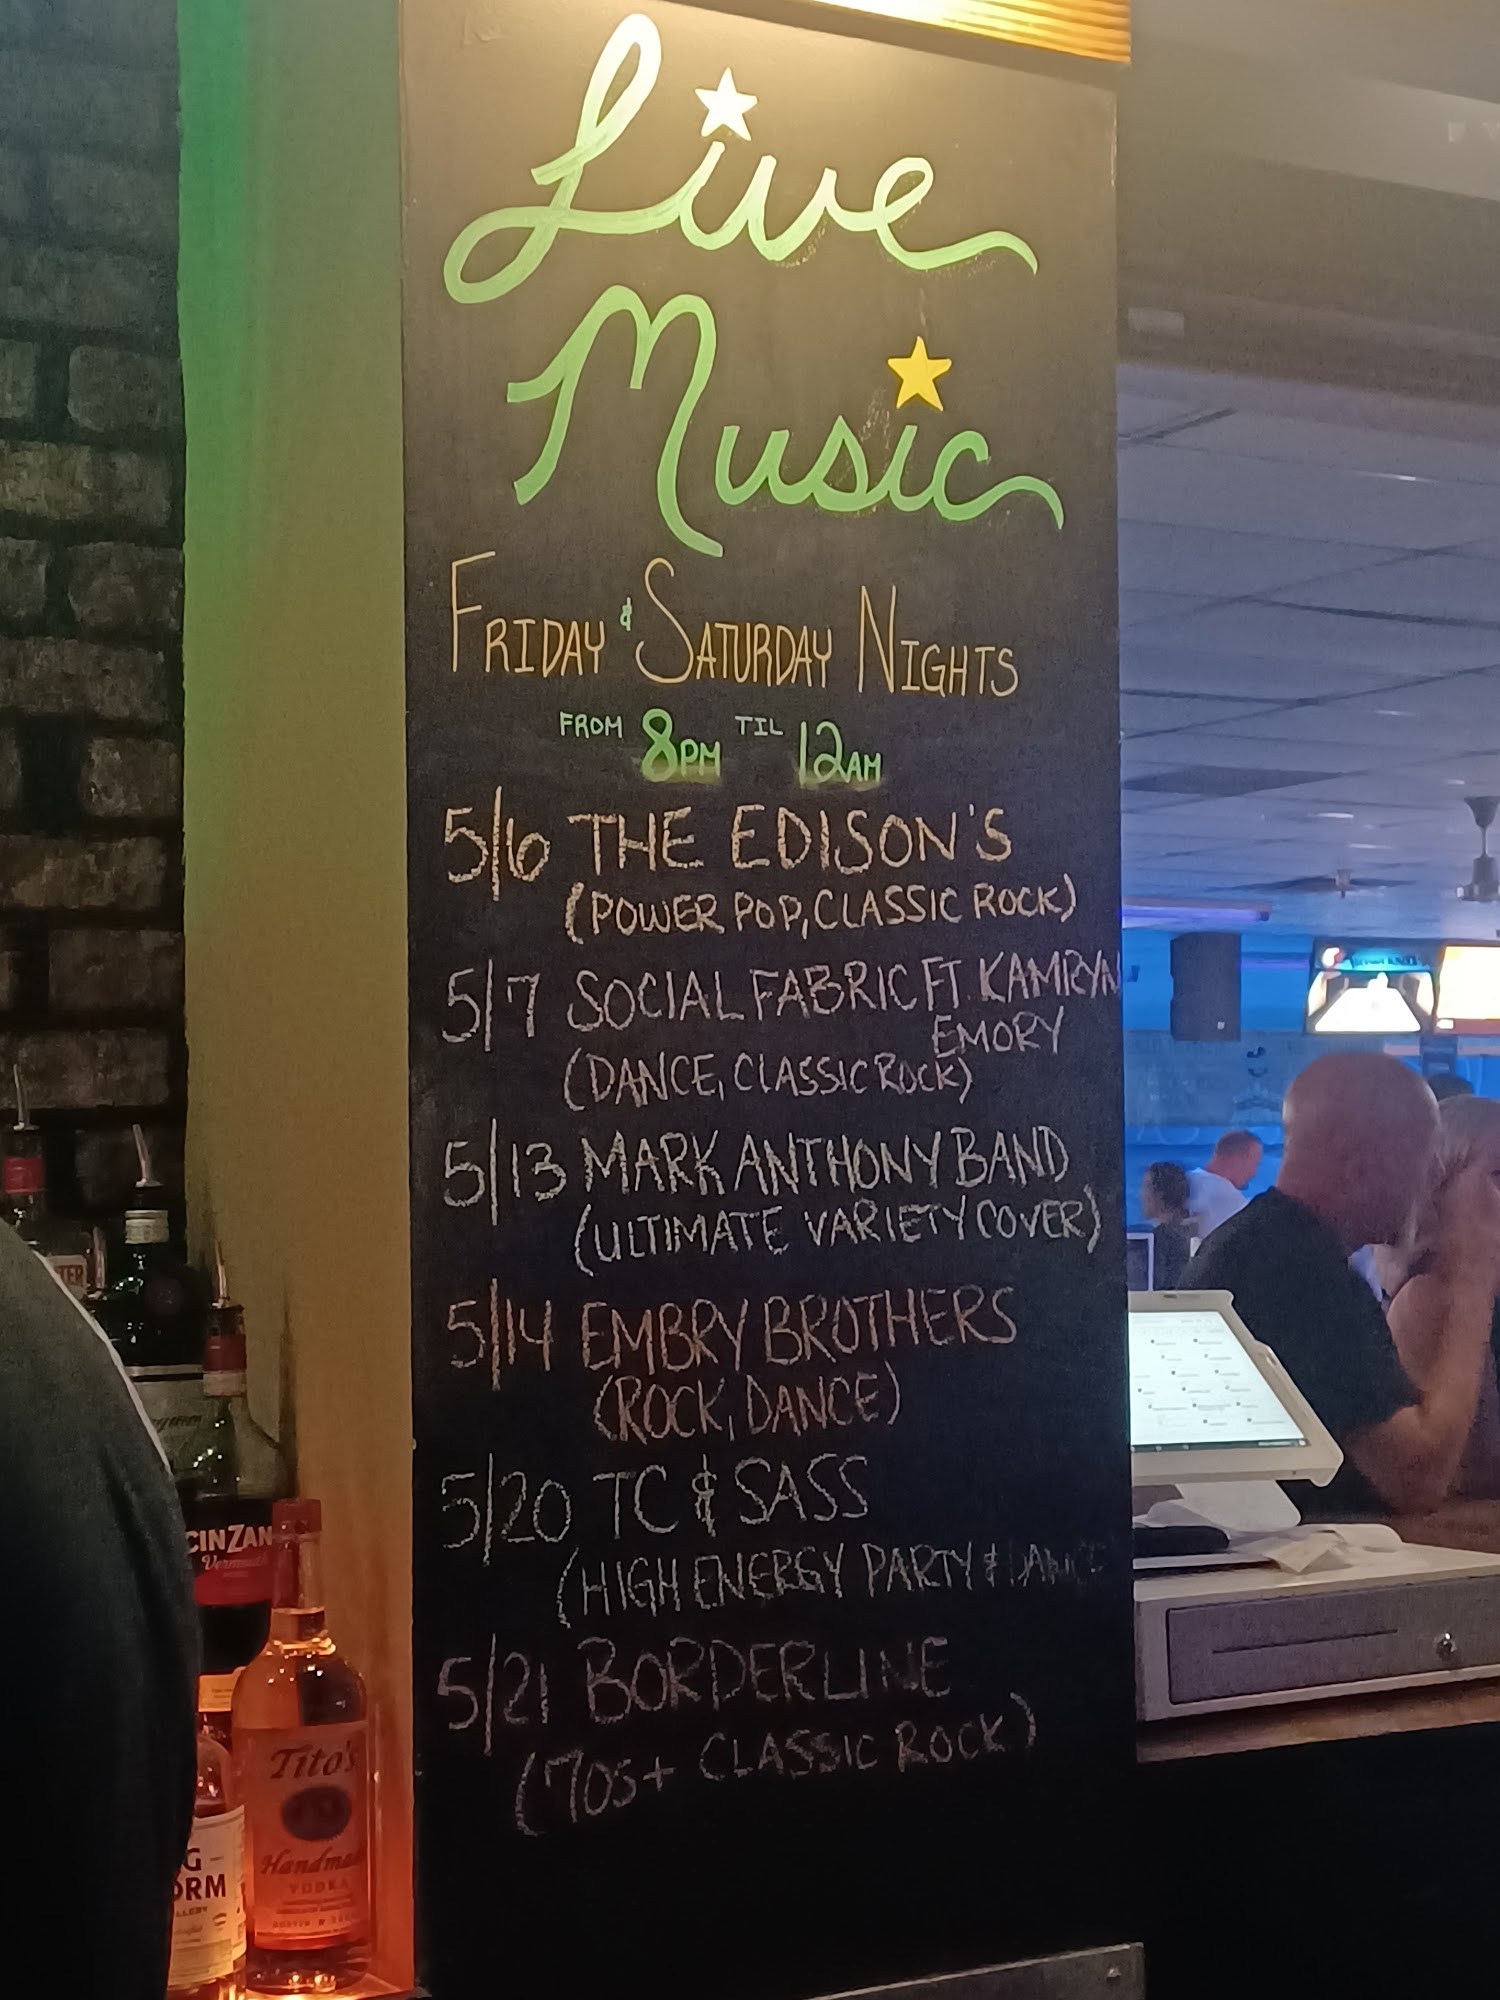 Live
Music
FRIDAY & SATURDAY NIGHTS
FROM 8PM TIL 12AM
5/6 THE EDISON'S
(POWER POP, CLASSIC ROCK)
5/7 SOCIAL FABRIC FT. KAMRYN
EMORY
(DANCE, CLASSIC ROCK)
5/13 MARK ANTHONY BAND
(ULTIMATE VARIETY COVER)
5/14 EMBRY BROTHERS
(ROCK, DANCE)
5/20 TC & SASS
(HIGH ENERGY PARTY & DANCE
5/21 BORDERLINE
('70s+ CLASSIC ROCK)
CINZAN
Vermouth
Tito's
Handmade
VODKA
ORM